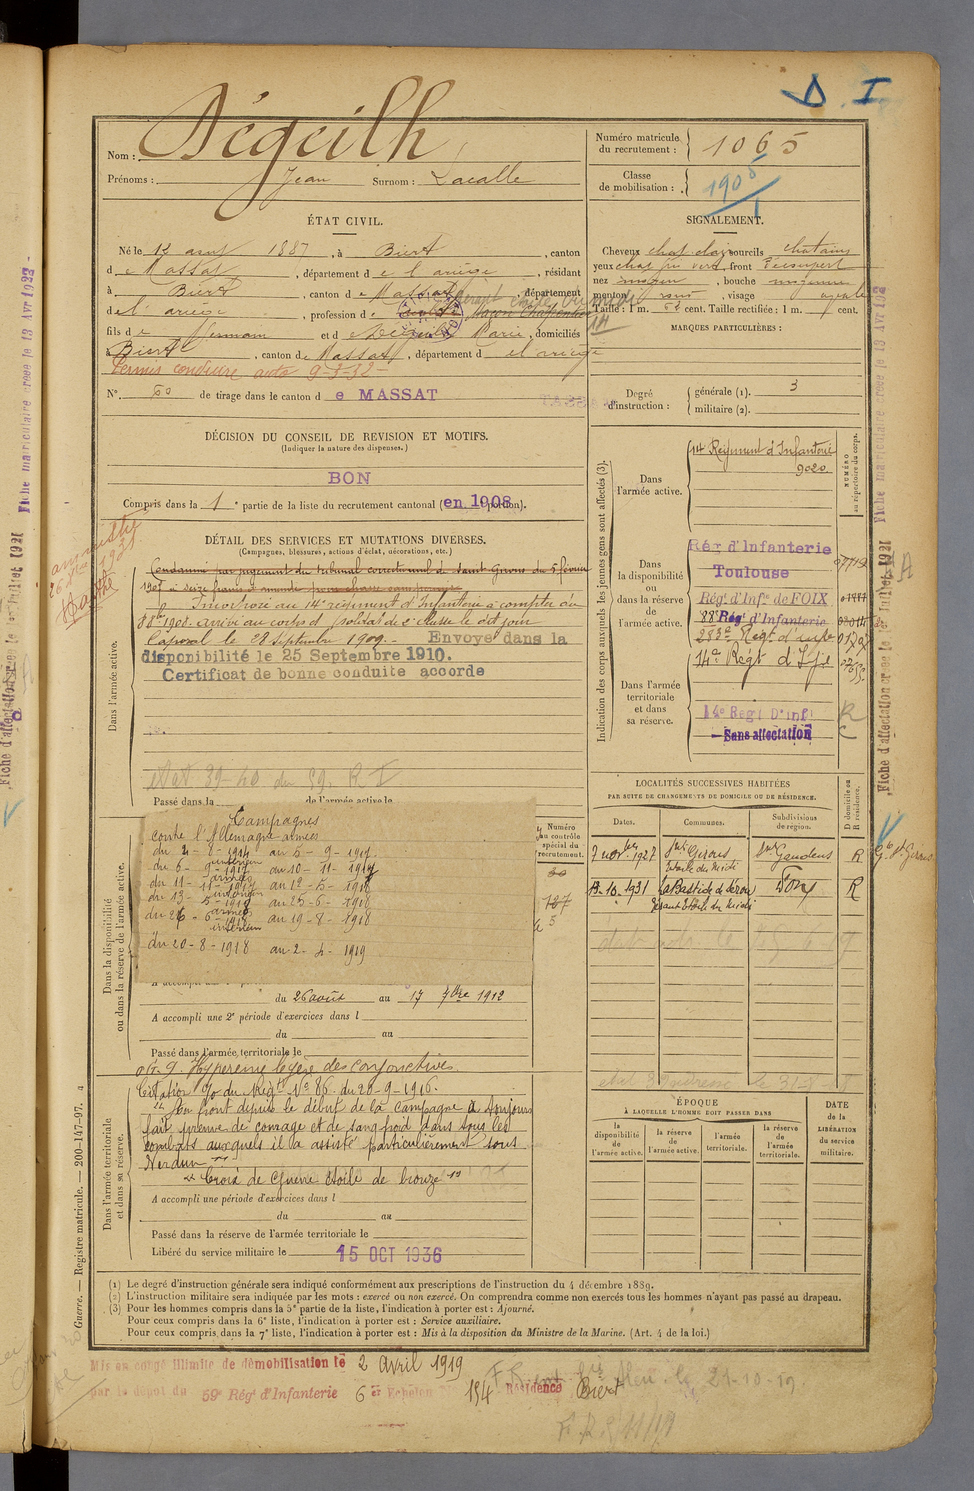 D I
Nom : Dégeilh
Prénoms : Jean Surnom : Lacalle
Numéro matricule du recrutement : 1065
Classe de mobilisation : 1908
ÉTAT CIVIL.
Né le 12 août 1887, à Biert, canton
de Massat, département de l'ariège, résidant
à Biert, canton de Massat, département
de l'ariège, profession de
fils de Germain et de Marie, domiciliés
à Biert, canton de Massat, département de l'ariège
Permis conduire auto 9-3-32-
N° 50 de tirage dans le canton de MASSAT
SIGNALEMENT.
Cheveux chat. clair sourcils chatains
yeux, front Découvert
nez moyen, bouche moyenne
menton rond, visage ovale
Taille : 1 m. cent. Taille rectifiée : 1 m. cent.
MARQUES PARTICULIÈRES :
Degré d'instruction : générale (1). 3
militaire (2).
DÉCISION DU CONSEIL DE REVISION ET MOTIFS.
(Indiquer la nature des dispenses.)
BON
Compris dans la 1e partie de la liste du recrutement cantonal (en 1908 portion).
DÉTAIL DES SERVICES ET MUTATIONS DIVERSES.
(Campagnes, blessures, actions d'éclat, décorations, etc.)
Dans l'armée active.
Condamné par jugement du tribunal correctionnel de Saint Girons du 5 février
Incorporé au 14e régiment d'Infanterie à compter du
8 8bre 1908. arrivé au corps et soldat de 2e classe le dit jour
Caporal le 28 Septembre 1909.- Envoyé dans la
disponibilité le 25 Septembre 1910.
Certificat de bonne conduite accorde
amnistie
Etat 39-40 du 59. R I
Passé dans la de l'armée active le
Indication des corps auxquels les jeunes gens sont affectés (3).
NUMÉRO au répertoire du corps.
Dans l'armée active.
14 Régiment d'Infanterie
9020
Dans la disponibilité ou dans la réserve de l'armée active.
Rég. d'Infanterie
Toulouse
Régt. d'Infie de FOIX
88e Régt d'Infanterie
283e Régt d'infie
14e Régt d'Ifie
Dans l'armée territoriale et dans sa réserve.
14e Regt D'inf.
Sans affectation
Dans la disponibilité ou dans la réserve de l'armée active.
Campagnes
contre l'Allemagne armées
du 4-8-1914 au 5-9-1917
intérieur
du 6-9-1917 au 10-11-1917
armées
du 11-11-1917 au 12-5-1918
intérieur
du 13-5-1918 au 25-6-1918
armées
du 26-6-1918 au 19-8-1918
intérieur
du 20-8-1918 au 2-4-1919
Numéro au contrôle spécial du recrutement.
du 26 août au 17 7bre 1912
A accompli une 2e période d'exercices dans l
du au
Passé dans l'armée territoriale le
O. G. G. Hyperémie légère des conjonctives
Dans l'armée territoriale et dans sa réserve.
Citation O/o du Régt No 86. du 20-9-1916.
"Au front depuis le début de la campagne a toujours
fait preuve de courage et de sang froid dans tous les
combats auxquels il a assisté particulièrement sous
Verdun"
"Croix de Guerre étoile de bronze"
A accompli une période d'exercices dans l
du au
Passé dans la réserve de l'armée territoriale le
Libéré du service militaire le 15 OCT 1936
LOCALITÉS SUCCESSIVES HABITÉES
PAR SUITE DE CHANGEMENTS DE DOMICILE OU DE RÉSIDENCE.
Dates. Communes. Subdivisions de région. D domicile ou R résidence.
7 novbre 1927 St Girons St Gaudens R
Etoile du Midi
13-10-1931 La Bastide de Sérou Foix R
Gérant Etoile du Midi
ÉPOQUE
À LAQUELLE L'HOMME DOIT PASSER DANS
la disponibilité de l'armée active. la réserve de l'armée active. l'armée territoriale. la réserve de l'armée territoriale.
DATE de la LIBÉRATION du service militaire.
(1) Le degré d'instruction générale sera indiqué conformément aux prescriptions de l'instruction du 4 décembre 1889.
(2) L'instruction militaire sera indiquée par les mots : exercé ou non exercé. On comprendra comme non exercés tous les hommes n'ayant pas passé au drapeau.
(3) Pour les hommes compris dans la 5e partie de la liste, l'indication à porter est : Ajourné.
Pour ceux compris dans la 6e liste, l'indication à porter est : Service auxiliaire.
Pour ceux compris dans la 7e liste, l'indication à porter est : Mis à la disposition du Ministre de la Marine. (Art. 4 de la loi.)
Mis en congé illimité de démobilisation le 2 avril 1919
par le dépôt du 59e Régt d'Infanterie 6e Echelon 194 Résidence Biert
Guerre. — Registre matricule. — 200-147-97.
Fiche matriculaire créée le 13 Avr 1922
Fiche d'affectation créée le 1er Juillet 1921